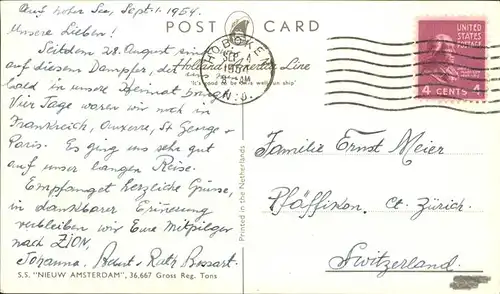 Auf hoher See, Sept. 1. 1954.
POST CARD
Unsere Lieben!
Seitdem 28. August sind
auf diesem Dampfer, der
Holland-America Line
"it's good to be on a well-run ship"
bald in unsere Heimat bringt
Vier Tage waren wir noch in
Frankreich, Auxerre, St. George -
Paris. Es ging uns sehr gut
auf unser langen Reise.
Empfanget herzliche Grüsse,
in dankbarer Erinnerung
verbleiben wir Eure Mitpilger
nach ZION,
Johanna, Ruth Bossart.
S.S. "NIEUW AMSTERDAM", 36.667 Gross Reg. Tons
Printed in the Netherlands
HOBOKEN
SEP 4
1954
N.J.
UNITED
STATES
POSTAGE
4 CENTS 4
Familie Ernst Meier
Pfäffikon. Ct. Zürich.
Switzerland